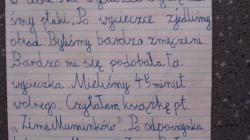 śmy ptaki. Po wycieczce zjedliśmy
obiad. Byliśmy bardzo zmęczeni.
Bardzo mi się podobała ta
wycieczka. Mieliśmy 45 minut
wolnego. Czytałam książkę pt.
"Zima Muminków". Po odpoczynku